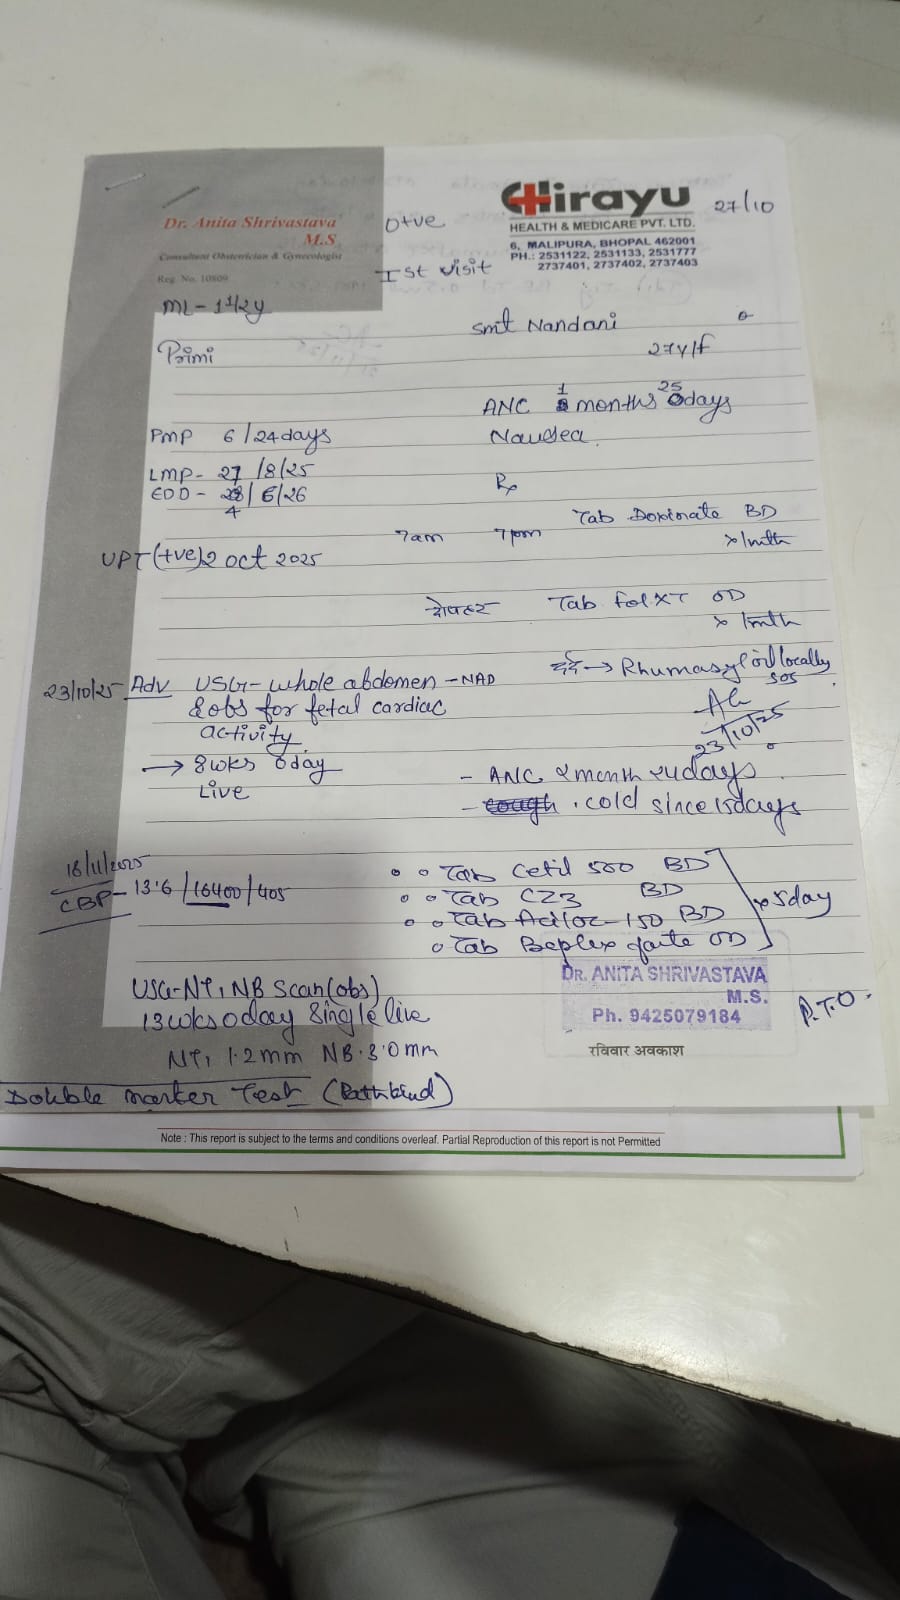 Dr. Anita Shrivastava
M.S
Consultant Obstetrician & Gynecologist
Reg. No. 10809
O+ve
Ist visit
Chirayu
HEALTH & MEDICARE PVT. LTD.
6, MALIPURA, BHOPAL 462001
PH.: 2531122, 2531133, 2531777
2737401, 2737402, 2737403
27/10
ML - 1 1/2y
Smt Nandani
Primi
27y/f
ANC 1 months 25 days
PMP 6/24days
Nausea
LMP - 27/8/25
EDD - /6/26
4
Rx
Tab Doxinate BD
7am 7pm
x 1mth
UPT (+ve) 2 oct 2025
दोपहर Tab Fol XT OD
x 1mth
23/10/25 Adv USG - whole abdomen - NAD
& obs for fetal cardiac
activity
दर्द → Rhumasyl oil locally
SOS
23/10/25
→ 8wks 0day
Live
- ANC 2 month 24days
- cough . cold since 15days
18/11/2025
CBP - 13.6/16400/405
Tab Cetil 500 BD
Tab CZ3 BD
Tab Aciloc-150 BD
Tab Beplex forte OD
x 5day
USG - NT, NB Scan (obs)
13wks 0day Single live
NT, 1.2mm NB. 3.0mm
DR. ANITA SHRIVASTAVA
M.S.
Ph. 9425079184
P.T.O.
रविवार अवकाश
Double marker Test (Pathkind)
Note : This report is subject to the terms and conditions overleaf. Partial Reproduction of this report is not Permitted